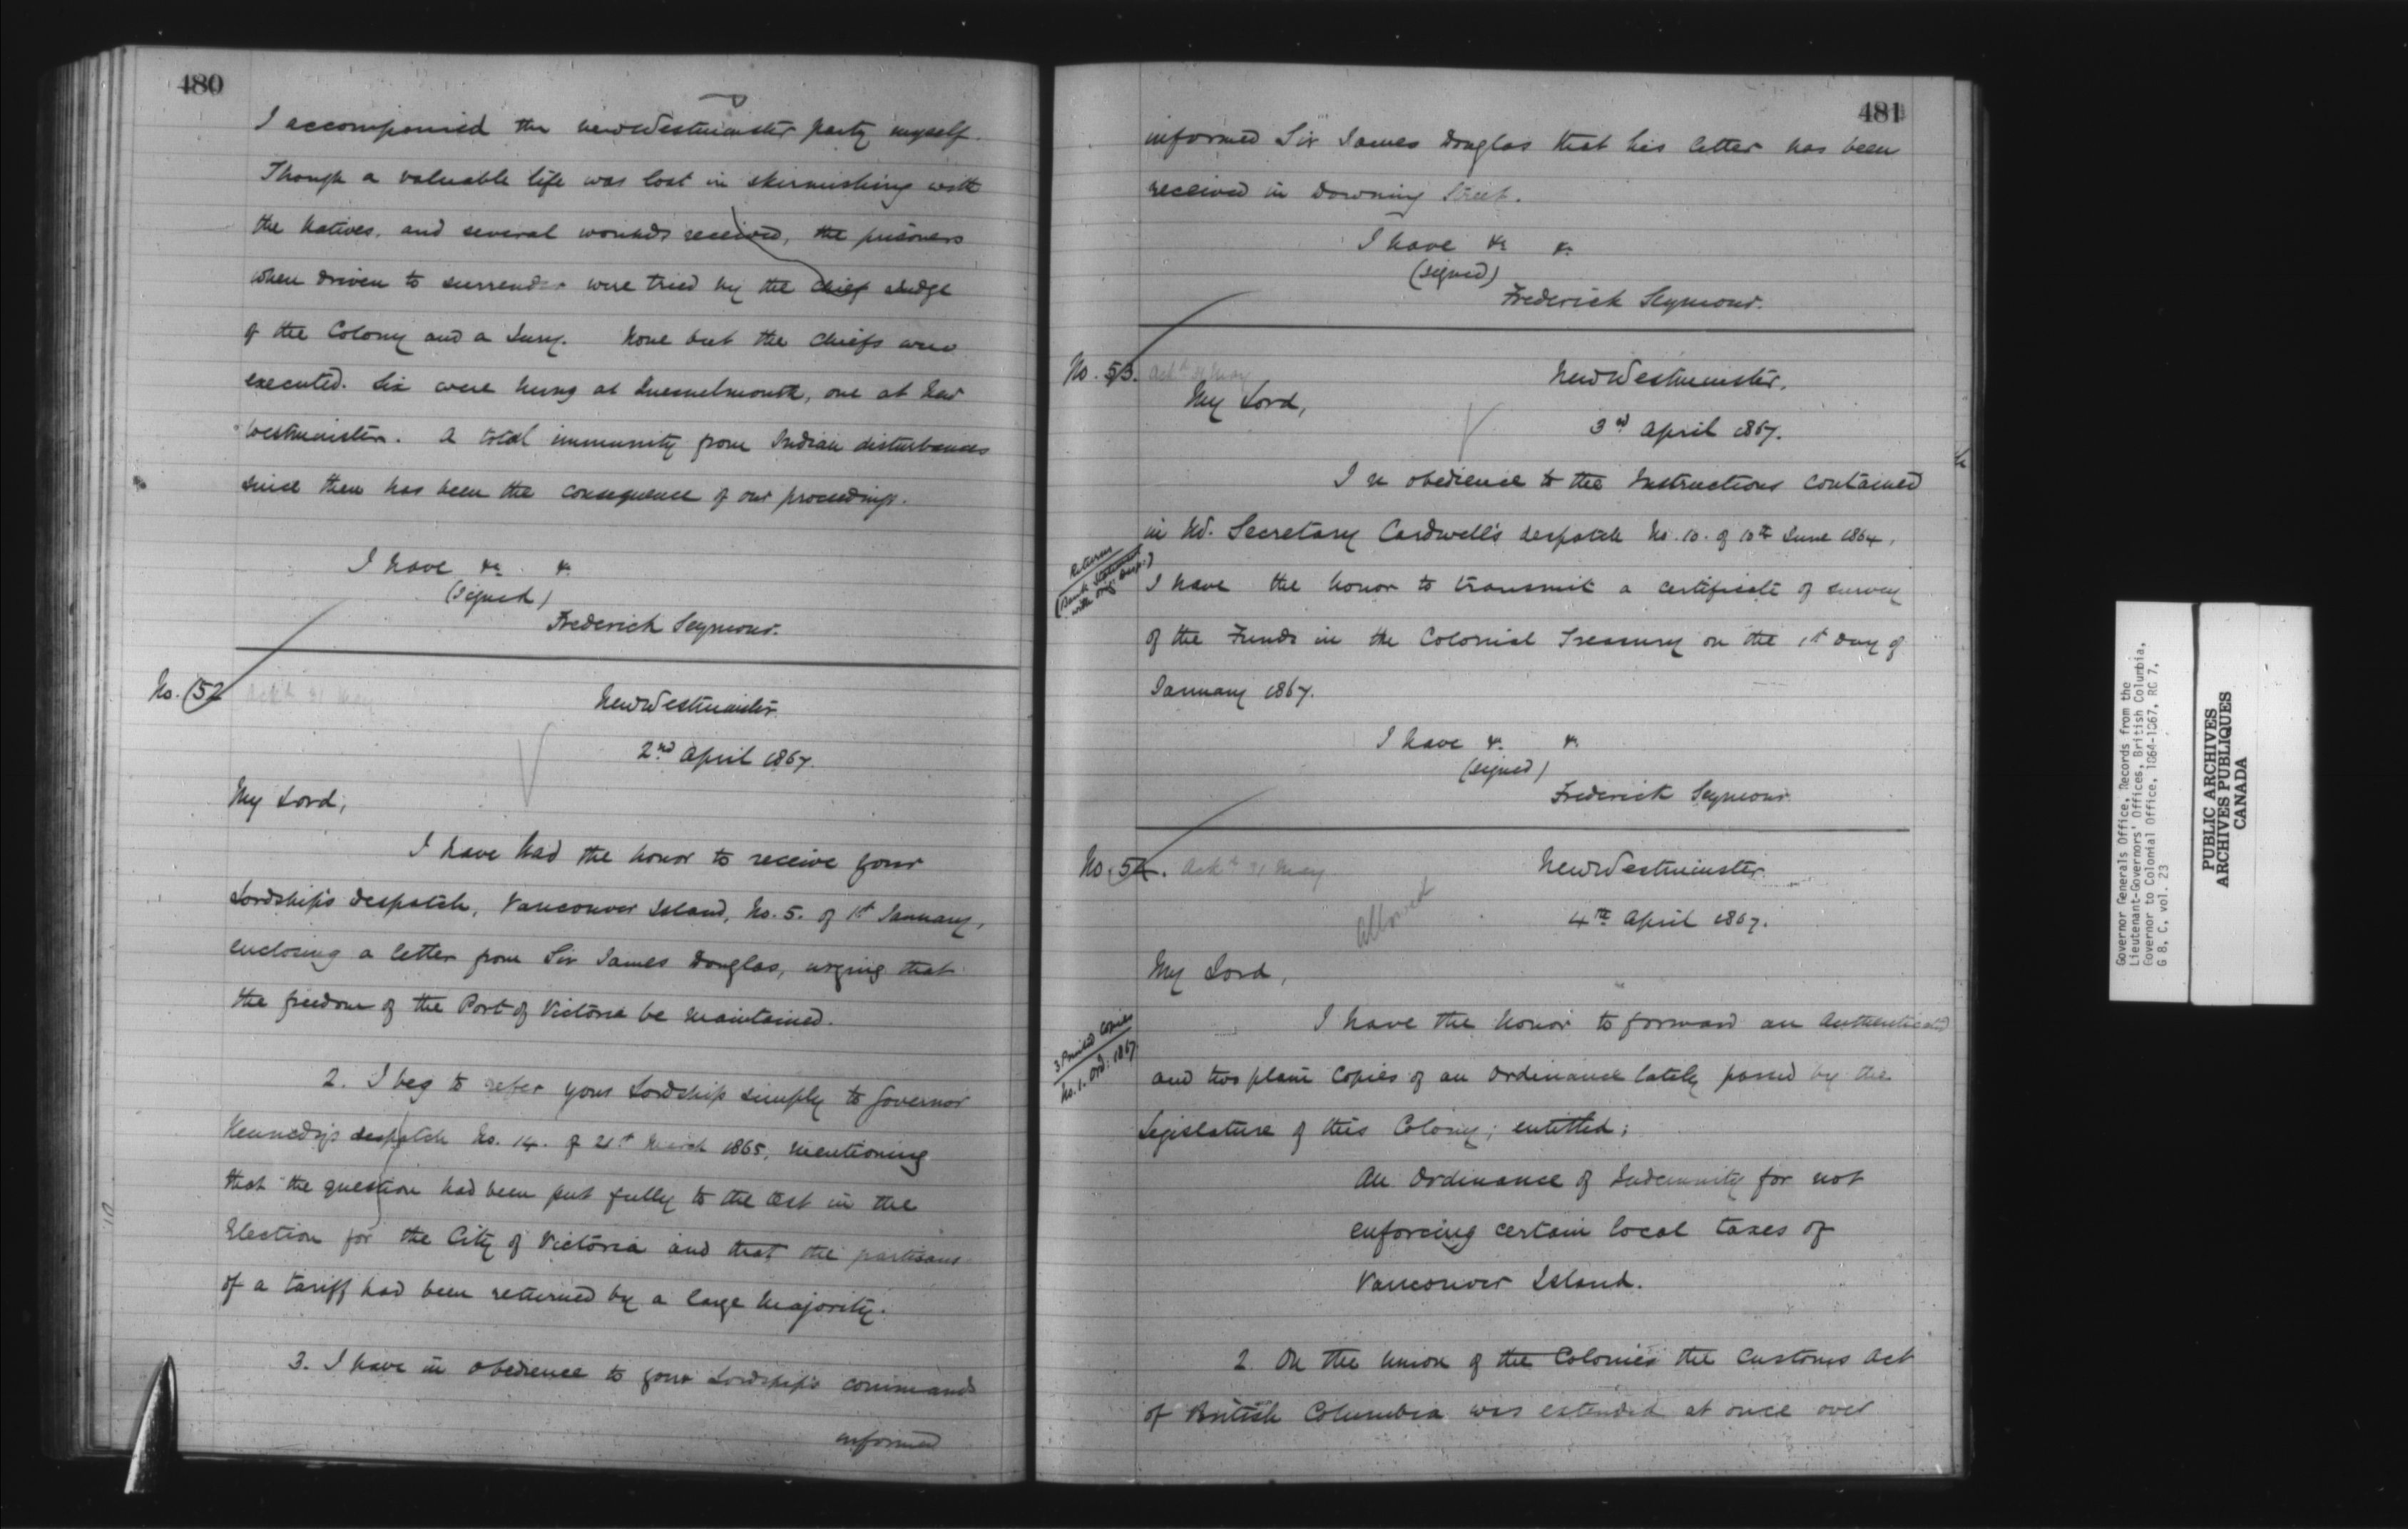 480
I accompanied the New Westminster party myself.
Though a valuable life was lost in skirmishing with
the Natives, and several wounds received, the prisoners
when driven to surrender were tried by the Chief Judge
of the Colony and a Jury. None but the Chiefs were
executed. Six were hung at Quesnelmouth, one at New
Westminster. A total immunity from Indian disturbances
since then has been the consequence of our proceedings.
I have &c. &c.
(signed)
Frederick Seymour.
No. 52
Ackd 31 May
New Westminster.
2nd April 1867.
My Lord,
I have had the honor to receive your
Lordship's despatch, Vancouver Island, No. 5. of 1st January,
enclosing a letter from Sir James Douglas, urging that
the freedom of the Port of Victoria be maintained.
2. I beg to refer your Lordship simply to Governor
Kennedy's despatch No. 14. of 21st March 1865, mentioning
that the question had been put fully to the test in the
Election for the City of Victoria and that the partisans
of a tariff had been returned by a large Majority.
3. I have in obedience to your Lordship's commands
informed
481
informed Sir James Douglas that his letter has been
received in Downing Street.
I have &c &c
(signed)
Frederick Seymour.
No. 53.
Ackd 31 May
New Westminster.
3rd April 1867.
My Lord,
In obedience to the Instructions contained
in Mr. Secretary Cardwell's despatch No. 10. of 10th June 1864,
Return
(Bank Statement
with orig. desp.)
I have the honor to transmit a certificate of survey
of the Funds in the Colonial Treasury on the 1st Day of
January 1867.
I have &c. &c.
(signed)
Frederick Seymour.
No. 54.
Ackd 31 May
allowed
New Westminster.
4th April 1867.
My Lord,
3 Printed Copies
No. 1. Ord: 1867
I have the honor to forward an authenticated
and two plain Copies of an Ordinance lately passed by the
Legislature of this Colony; entitled;
An Ordinance of Indemnity for not
enforcing certain local taxes of
Vancouver Island.
2. On the Union of the Colonies the Customs Act
of British Columbia was extended at once over
Governor Generals Office, Records from the
Lieutenant-Governors' Offices, British Columbia,
Governor to Colonial Office, 1864-1867, RG 7,
G 8, C, vol. 23
PUBLIC ARCHIVES
ARCHIVES PUBLIQUES
CANADA